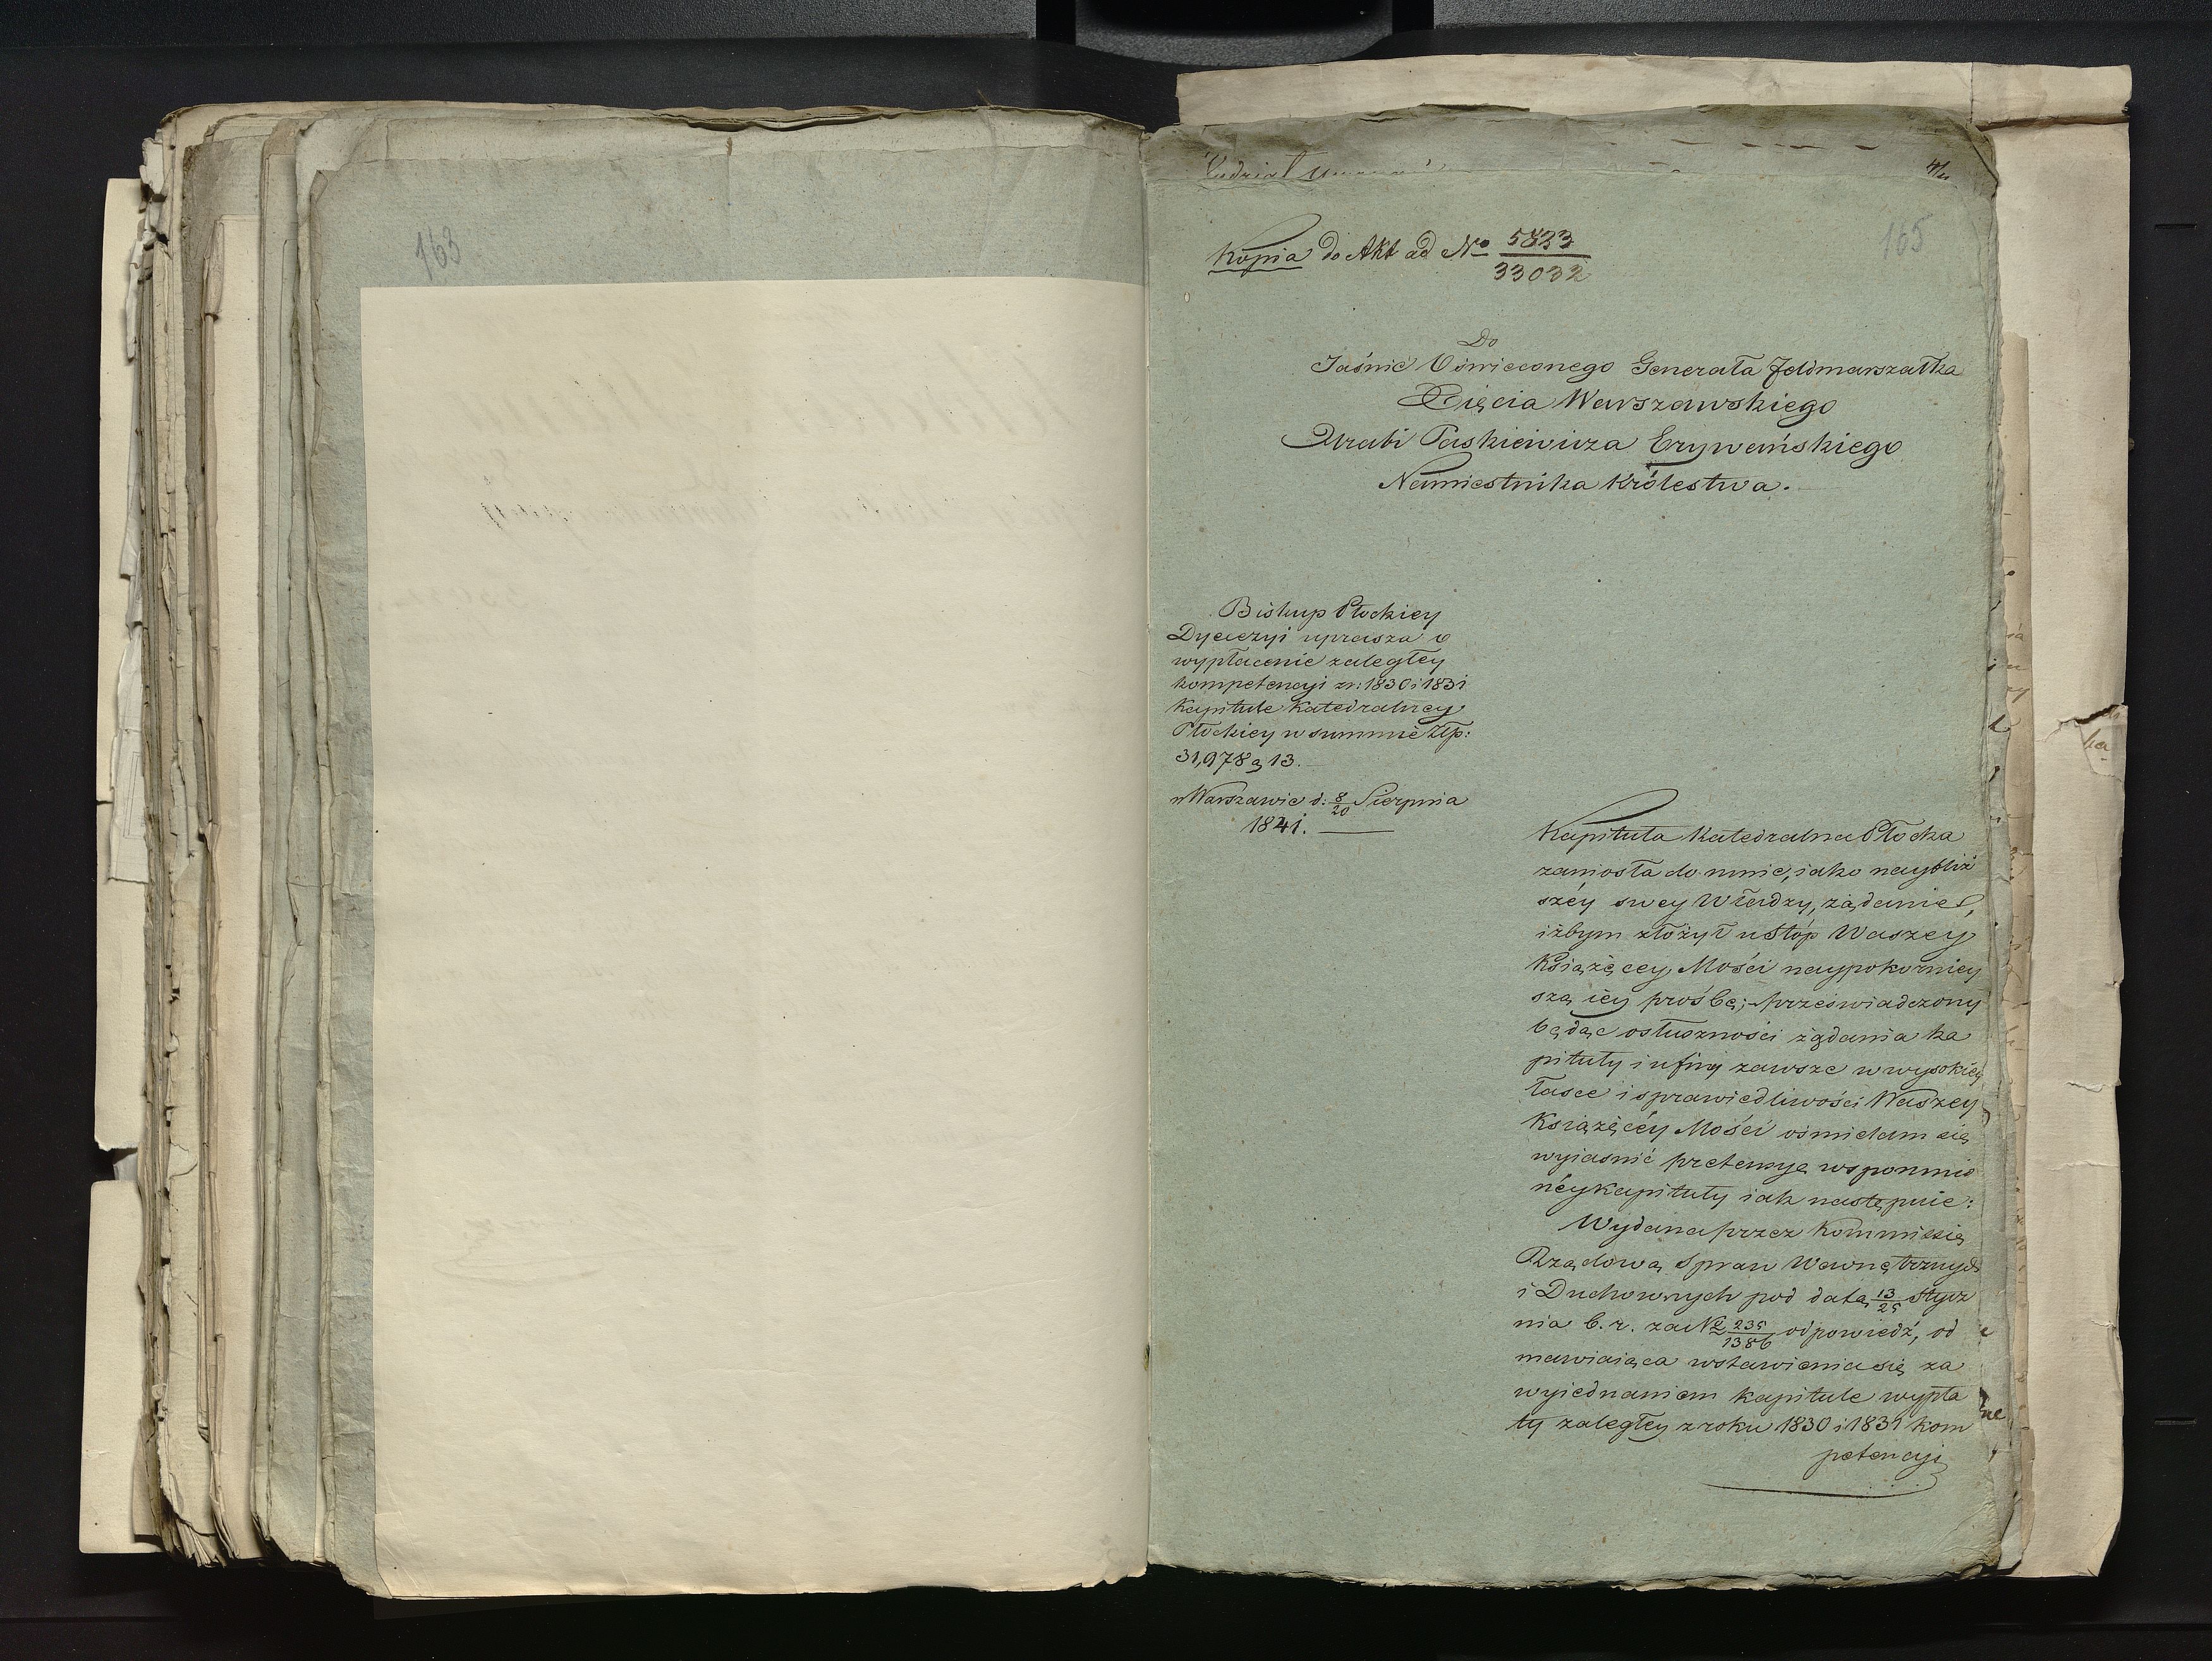 163
165
Kopia do Akt ad No 5823/33032
Do
Jaśnie Oświeconego Generała Feldmarszałka
Xięcia Warszawskiego
Hrabi Paskiewicza Erywańskiego
Namiestnika Królestwa.
Biskup Płockiey
Dyecezyi uprasza o
wypłacenie zaległey
kompetencyi z r: 1830 i 1831
Kapitule Katedralney
Płockiey w summie Złp:
31,978 g 13.
w Warszawie d: 8/20 Sierpnia
1841.
Kapituła Katedralna Płocka
zaniosła do mnie, iako naybliż
széy swey Władzy, żądanie,
iżbym złożył u stóp Waszey
Książęcey Mości naypokorniey
szą iey prośbę; przeświadczony
będąc o słuszności żądania Ka
pituły i ufny zawsze w wysokiey
łasce i sprawiedliwości Waszey
Książęcéy Mości ośmielam się
wyiasnić pretensyę wspomnio
néy kapituły iak następuie:
Wydana przez Kommissię
Rządową Spraw Wewnętrznych
i Duchownych pod datą 13/25 stycz
nia b. r. za No 235/1386 odpowiedź, od
mawiaiąca wstawienia się za
wyiednaniem Kapitule wypła
ty zaległey z roku 1830 i 1831 kom
petencyi